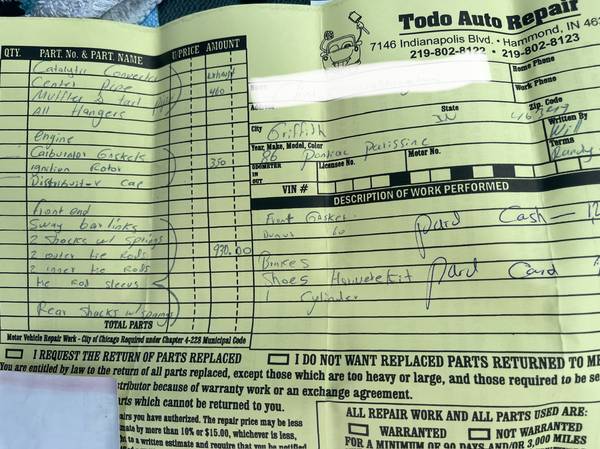 Todo Auto Repair
7146 Indianapolis Blvd. • Hammond, IN 463
219-802-8122 • 219-802-8123
Home Phone
Work Phone
State
Zip. Code
IN
City
Griffith
Written By
Will
Year, Make, Model, Color
Terms
86 Pontiac Parissine
ODOMETER
IN
OUT
Licensee No.
Motor No.
VIN #
DESCRIPTION OF WORK PERFORMED
Front Gasket
60
paid Cash
Brakes
Shoes Hardware Kit
paid Card
1 Cylinder
QTY.
PART. No. & PART. NAME
U/PRICE
AMOUNT
Catalytic Converter
exhaust
Center pipe
460
Muffler & tail
All Hangers
Engine
Carburator Gaskets
350
ignition Rotor
Distributor Cap
front end
Sway bar links
2 Shocks w/ Springs
930.00
2 outer tie Rods
2 inner tie Rods
tie Rod sleevs
Rear Shocks w/ springs
TOTAL PARTS
Motor Vehicle Repair Work - City of Chicago Required under Chapter 4-228 Municipal Code
I REQUEST THE RETURN OF PARTS REPLACED
I DO NOT WANT REPLACED PARTS RETURNED TO ME
You are entitled by law to the return of all parts replaced, except those which are too heavy or large, and those required to be se
tributor because of warranty work or an exchange agreement.
rts which cannot be returned to you.
airs you have authorized. The repair price may be less
mate by more than 10% or $15.00, whichever is less,
ht to a written estimate and require that you be notified
ALL REPAIR WORK AND ALL PARTS USED ARE:
WARRANTED
NOT WARRANTED
FOR A MINIMUM OF 90 DAYS AND/OR 3,000 MILES